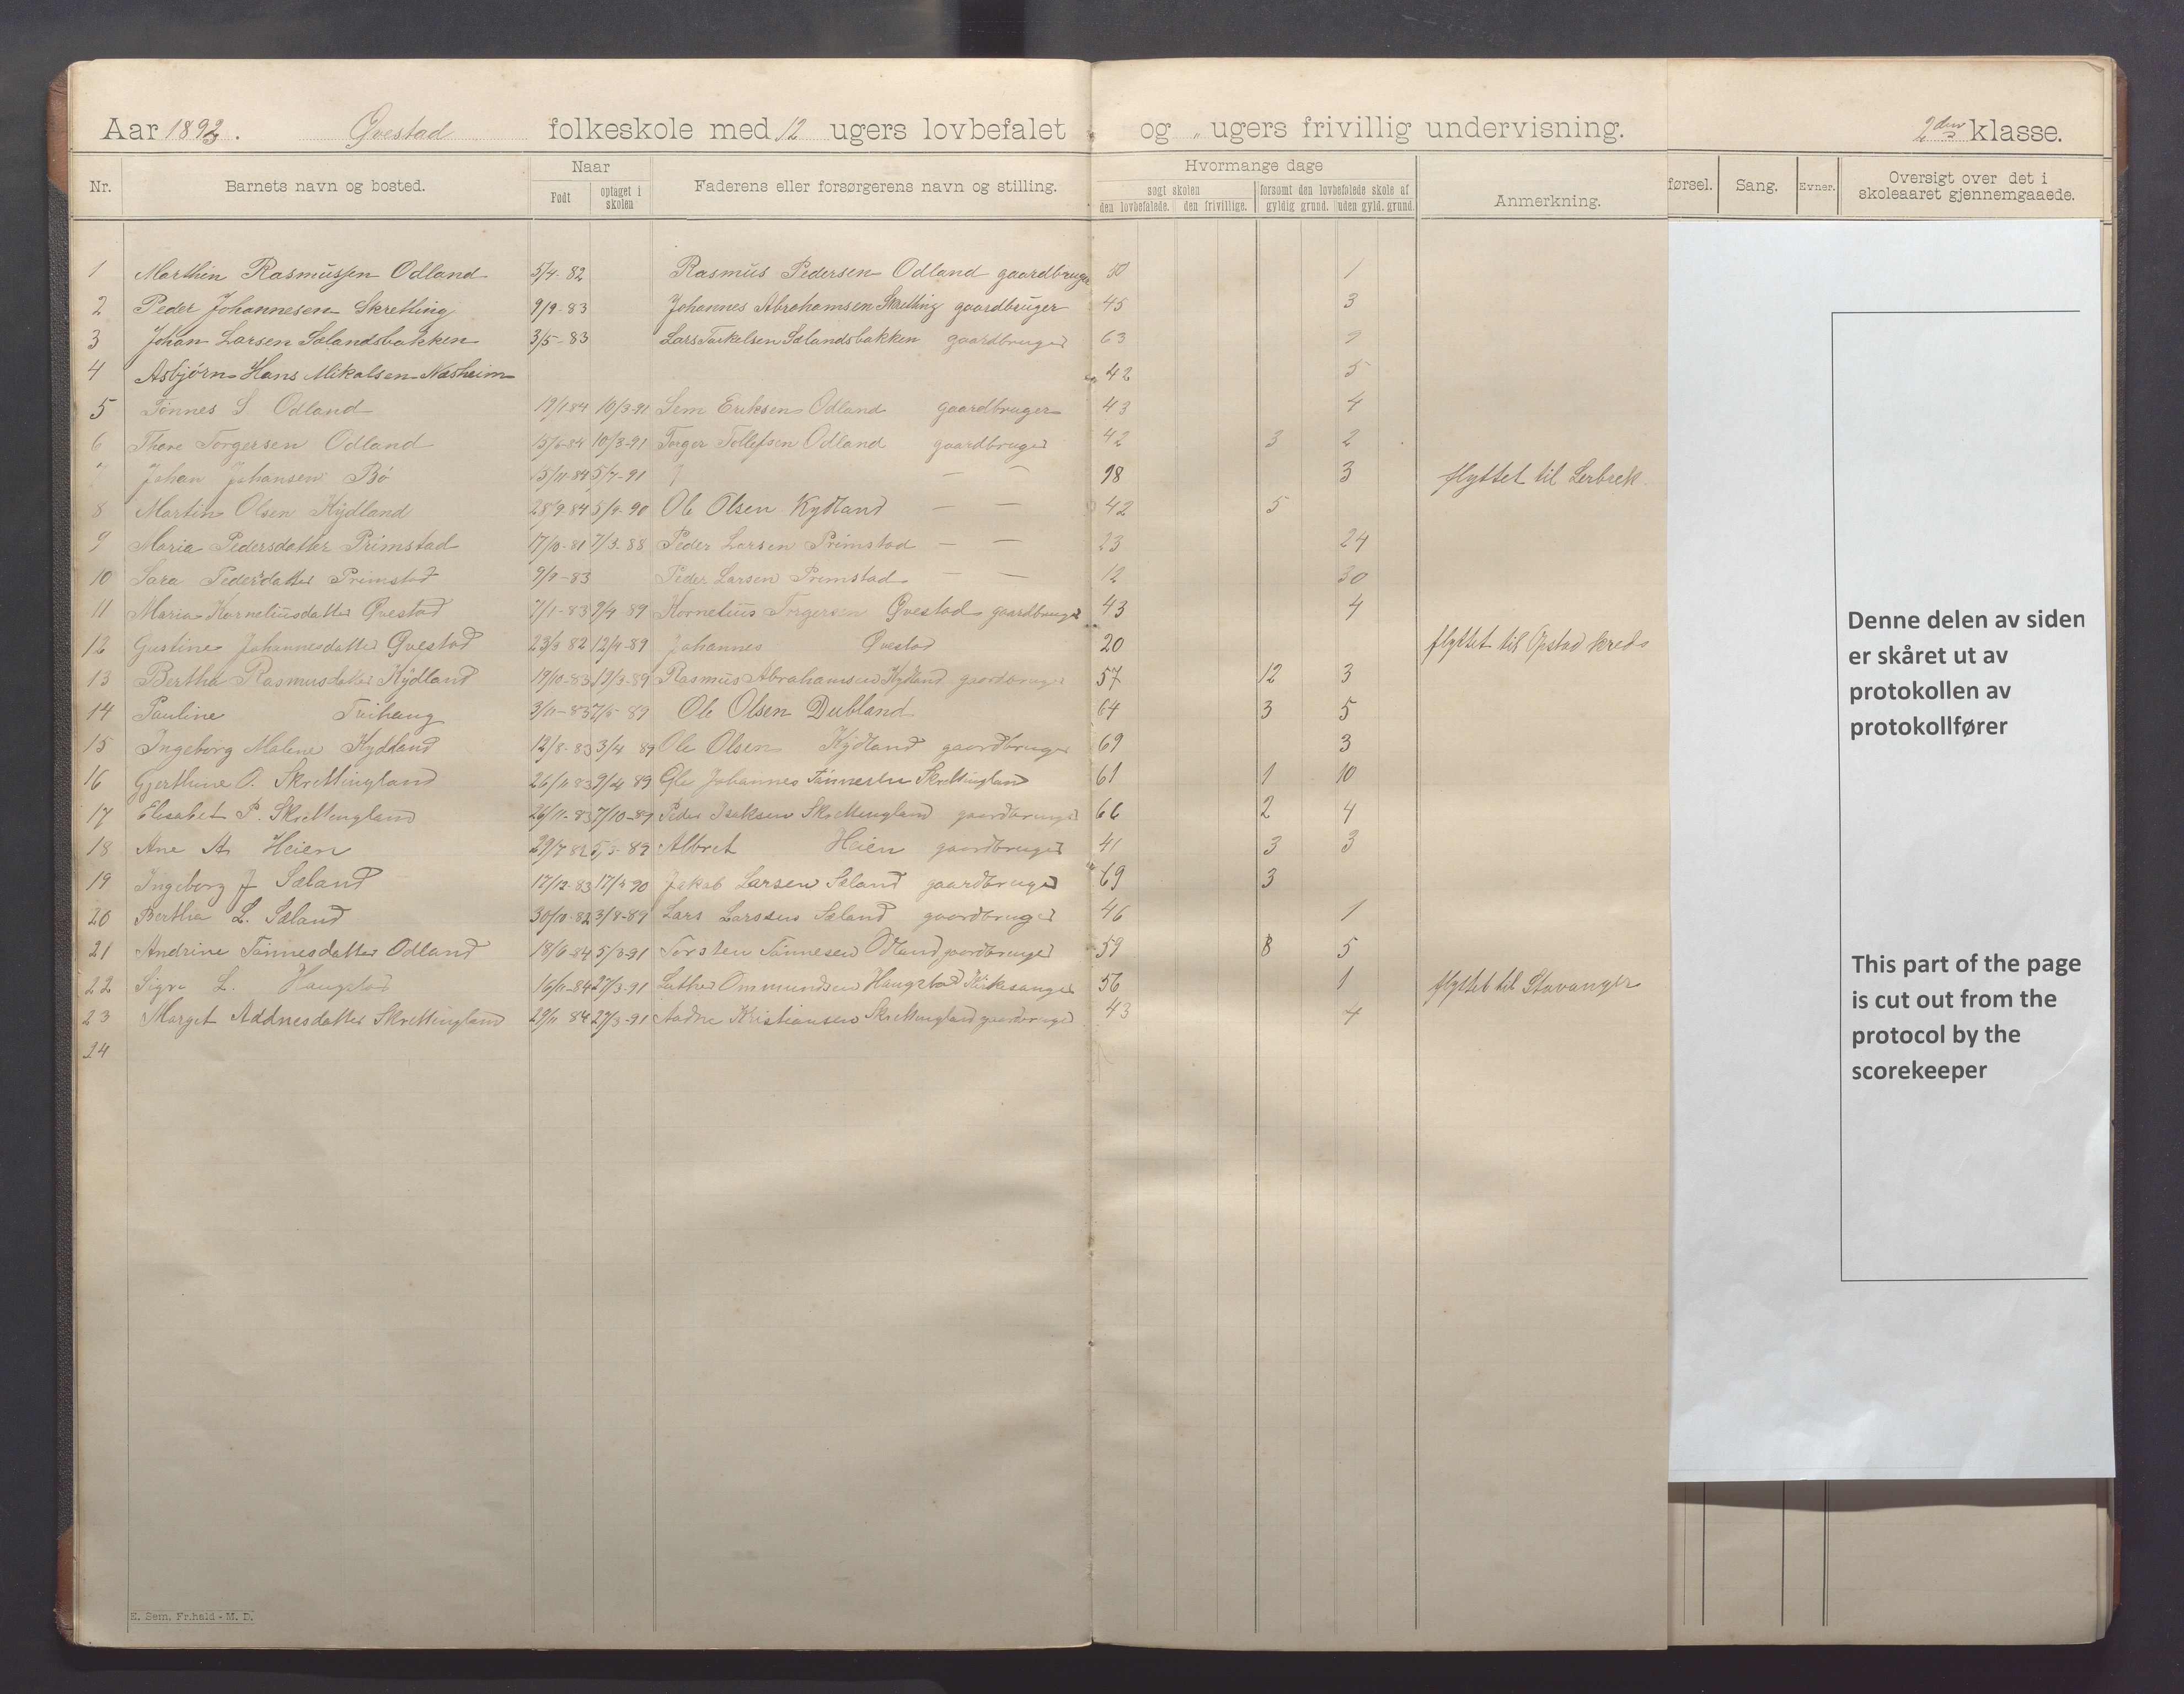 Aar 1892. Qvestad folkeskole med 12 ugers lovbefalet og „ ugers frivillig undervisning. 2den klasse.
Nr. Barnets navn og bosted. Naar Født optaget i skolen Faderens eller forsørgerens navn og stilling. Hvormange dage søgt skolen den lovbefalede. den frivillige. forsømt den lovbefalede skole af gyldig grund. uden gyld. grund. Anmerkning. førsel. Sang. Evner. Oversigt over det i skoleaaret gjennemgaaede.
1 Marthin Rasmussen Odland 5/4-82 Rasmus Pedersen Odland gaardbruger 50 1
2 Peder Johannesen Skretting 9/9-83 Johannes Abrahamsen Skretting gaardbruger 45 3
3 Johan Larsen Sælandsbakken 3/5-83 Lars Torkelsen Sælandsbakken gaardbruger 63
4 Asbjørn Hans Mikalsen Næsheim 42 5
5 Tønnes S Odland 19/1 84 10/3-91 Sem Eriksen Odland gaardbruger 43 4
6 Thore Torgersen Odland 15/6-84 10/3-91 Torger Tollefsen Odland gaardbruger 42 3 2
" Johan Johansen Bø 15/11-84 5/7-91 — — 18 3 flyttet til Lerbrek
8 Martin Olsen Kydland 28/9-84 5/9-90 Ole Olsen Kydland — — 42 5
9 Maria Pedersdatter Primstad 17/10-81 7/3-88 Peder Larsen Primstad — — 23 24
10 Sara Pedersdatter Primstad 9/9-83 Peder Larsen Primstad — — 12 30
11 Maria Korneliusdatter Qvestad 7/1-83 9/4-89 Kornelius Torgersen Qvestad gaardbruger 43 4
12 Gustine Johannesdatter Qvestad 23/3 82 12/4-89 Johannes Qvestad 20 flyttet til Opstad kreds
13 Bertha Rasmusdatter Kydland 19/10-83 12/3-89 Rasmus Abrahamsen Kydland gaardbruger 57 12 3
14 Pauline Tuihaug 3/11-83 7/5-89 Ole Olsen Dubland 64 3 5
15 Ingeborg Malene Kydland 12/8-83 3/4 89 Ole Olsen Kydland gaardbruger 69 3
16 Gjerthine O. Skrettingland 26/11 83 9/4 89 Ole Johannes Tønnesen Skrettingland 61 1 10
17 Elisabet P. Skrettingland 26/11-83 7/10-89 Peder Isaksen Skrettingland gaardbruger 66 2 4
18 Ane A. Heien 29/7 82 5/5-89 Albret Heien gaardbruger 41 3 3
19 Ingeborg J Sæland 12/12-83 17/4 90 Jakob Larsen Sæland gaardbruger 69 3
20 Bertha L. Sæland 30/10-82 3/8-89 Lars Larssen Sæland gaardbruger 46 1
21 Andrine Tønnesdatter Odland 18/6-84 5/3-91 Torsten Tønnesen Odland gaardbruger 59 8 5
22 Sigve L. Haugstad 16/11-84 27/3-91 Luther Ommundsen Haugstad Kirkesanger 56 1 flyttet til Stavanger
23 Marget Aadnesdatter Skrettingland 29/11 84 29/3-91 Aadne Kristiansen Skrettingland gaardbruger 43 4
24
Denne delen av siden
er skåret ut av
protokollen av
protokollfører
This part of the page
is cut out from the
protocol by the
scorekeeper
E. Sem, Fr.hald - M. D.